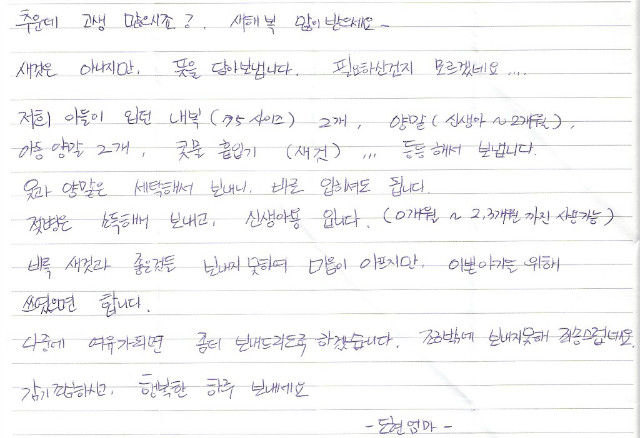 추운데 고생 많으시죠? 새해 복 많이 받으세요-
새것은 아니지만, 뜻을 담아보냅니다. 필요하실건지 모르겠네요....
저희 아들이 입던 내복(75 사이즈) 2개, 양말(신생아 ~ 2개월),
아동 양말 2개, 콧물 흡입기 (새것) ... 등등 해서 보냅니다.
옷과 양말은 세탁해서 보내니, 바로 입히셔도 됩니다.
젖병은 소독해서 보내고, 신생아용 입니다. (0개월 ~ 2,3개월까진 사용가능)
비록 새것과 좋은것들 보내지 못하여 마음이 아프지만, 이쁜아기들 위해
쓰였으면 합니다.
다음에 여유가되면 좀더 보내드리도록 하겠습니다. 조금밖에 보내지못해 죄송스럽네요.
감기조심하시고, 행복한 하루 보내세요
- 도현엄마 -